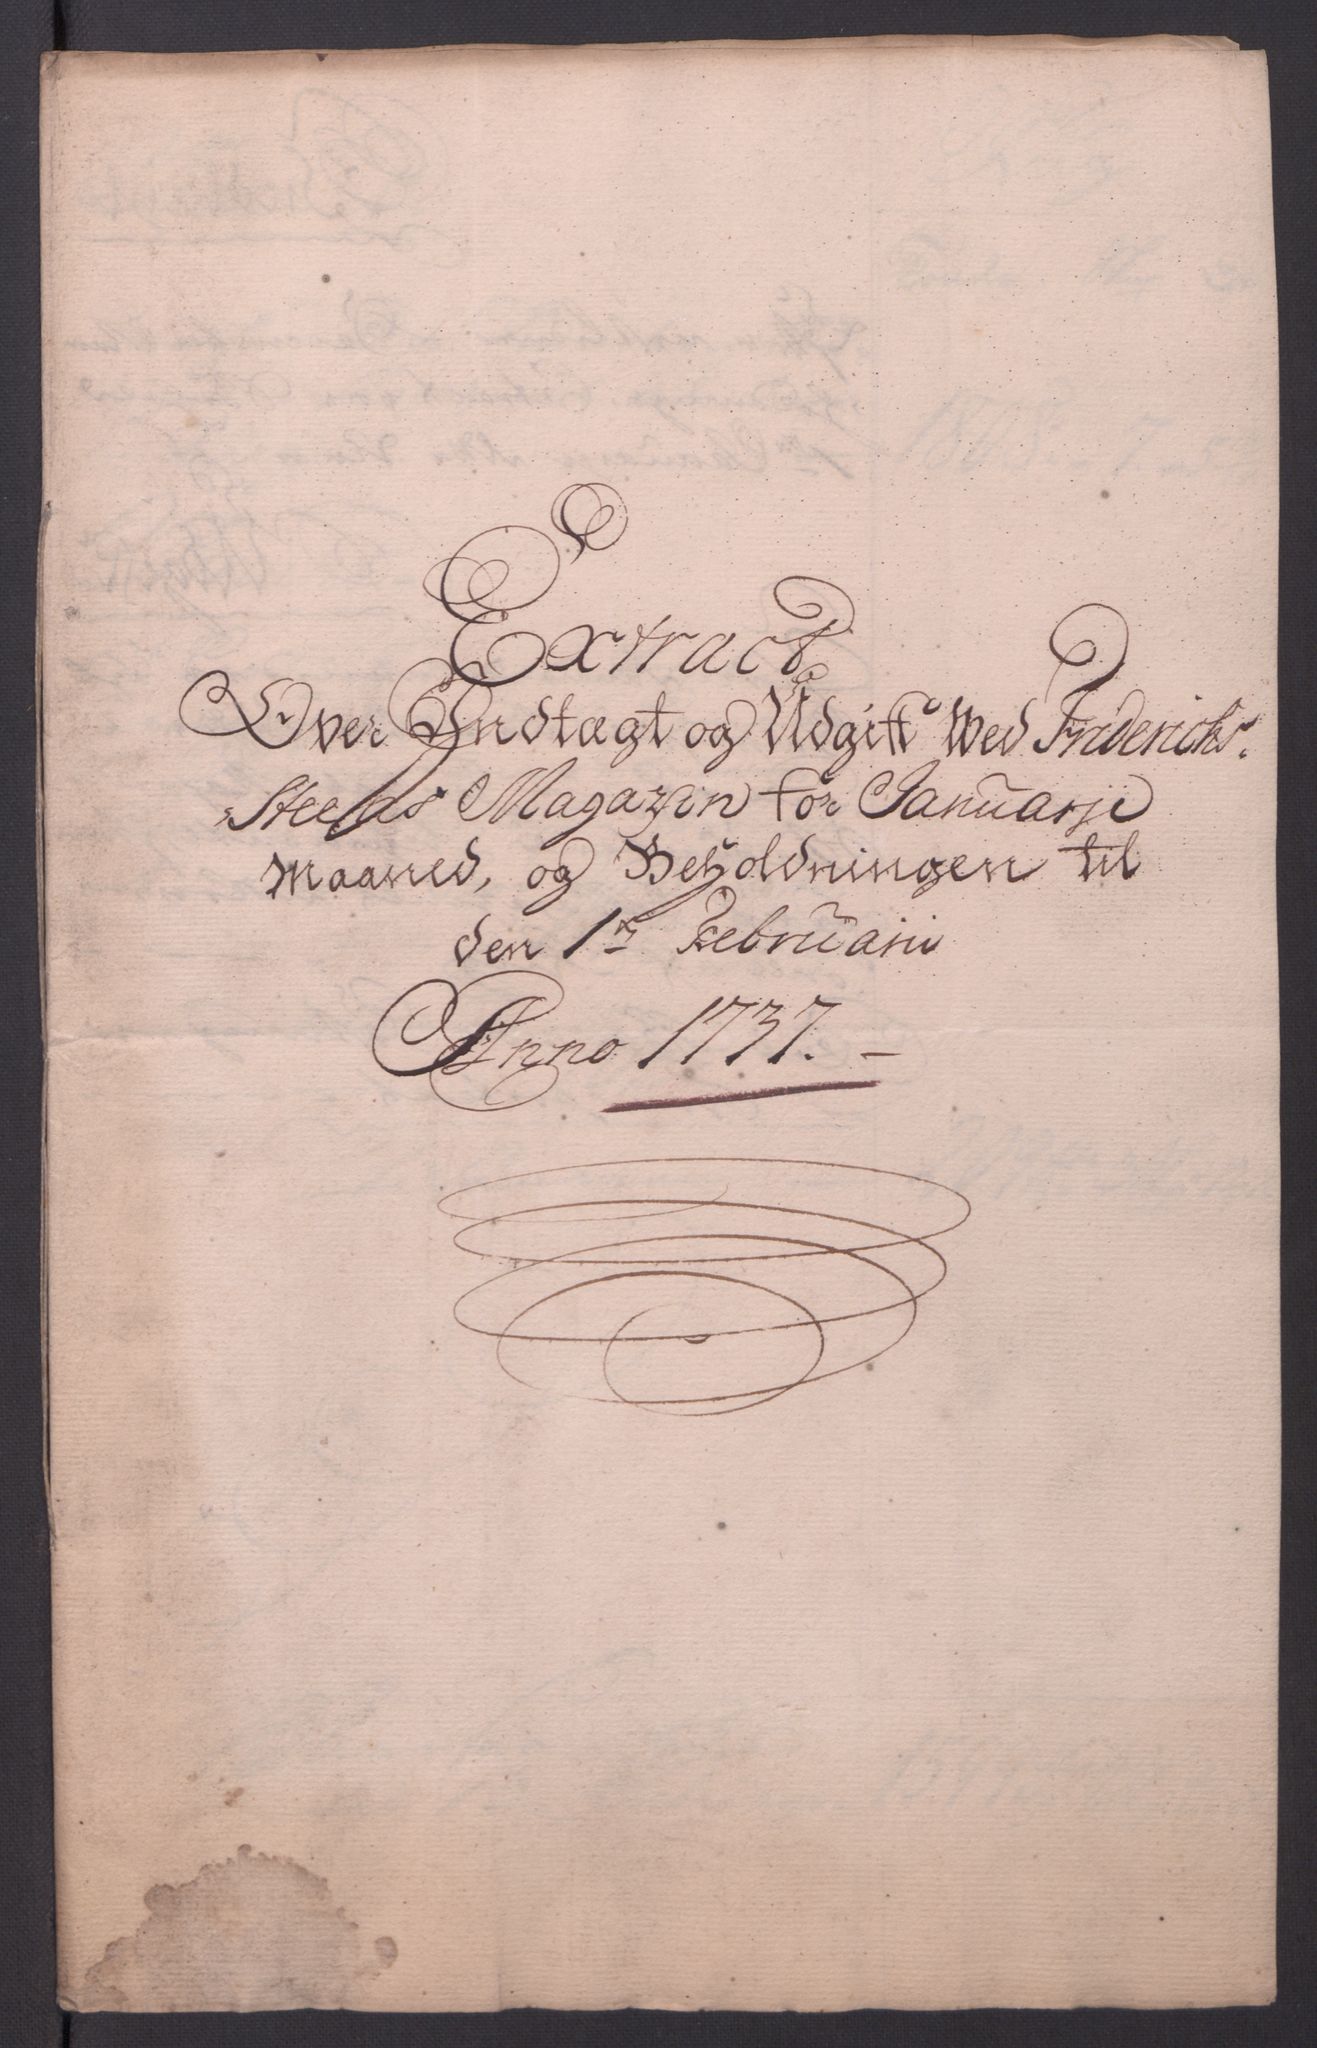 Extract
Over Indtægt og Udgift Wed Friderichs-
Steens Magazin for Januarji
Maaned, og Beholdningen til
den 1.te Februarii
Anno 1737. –